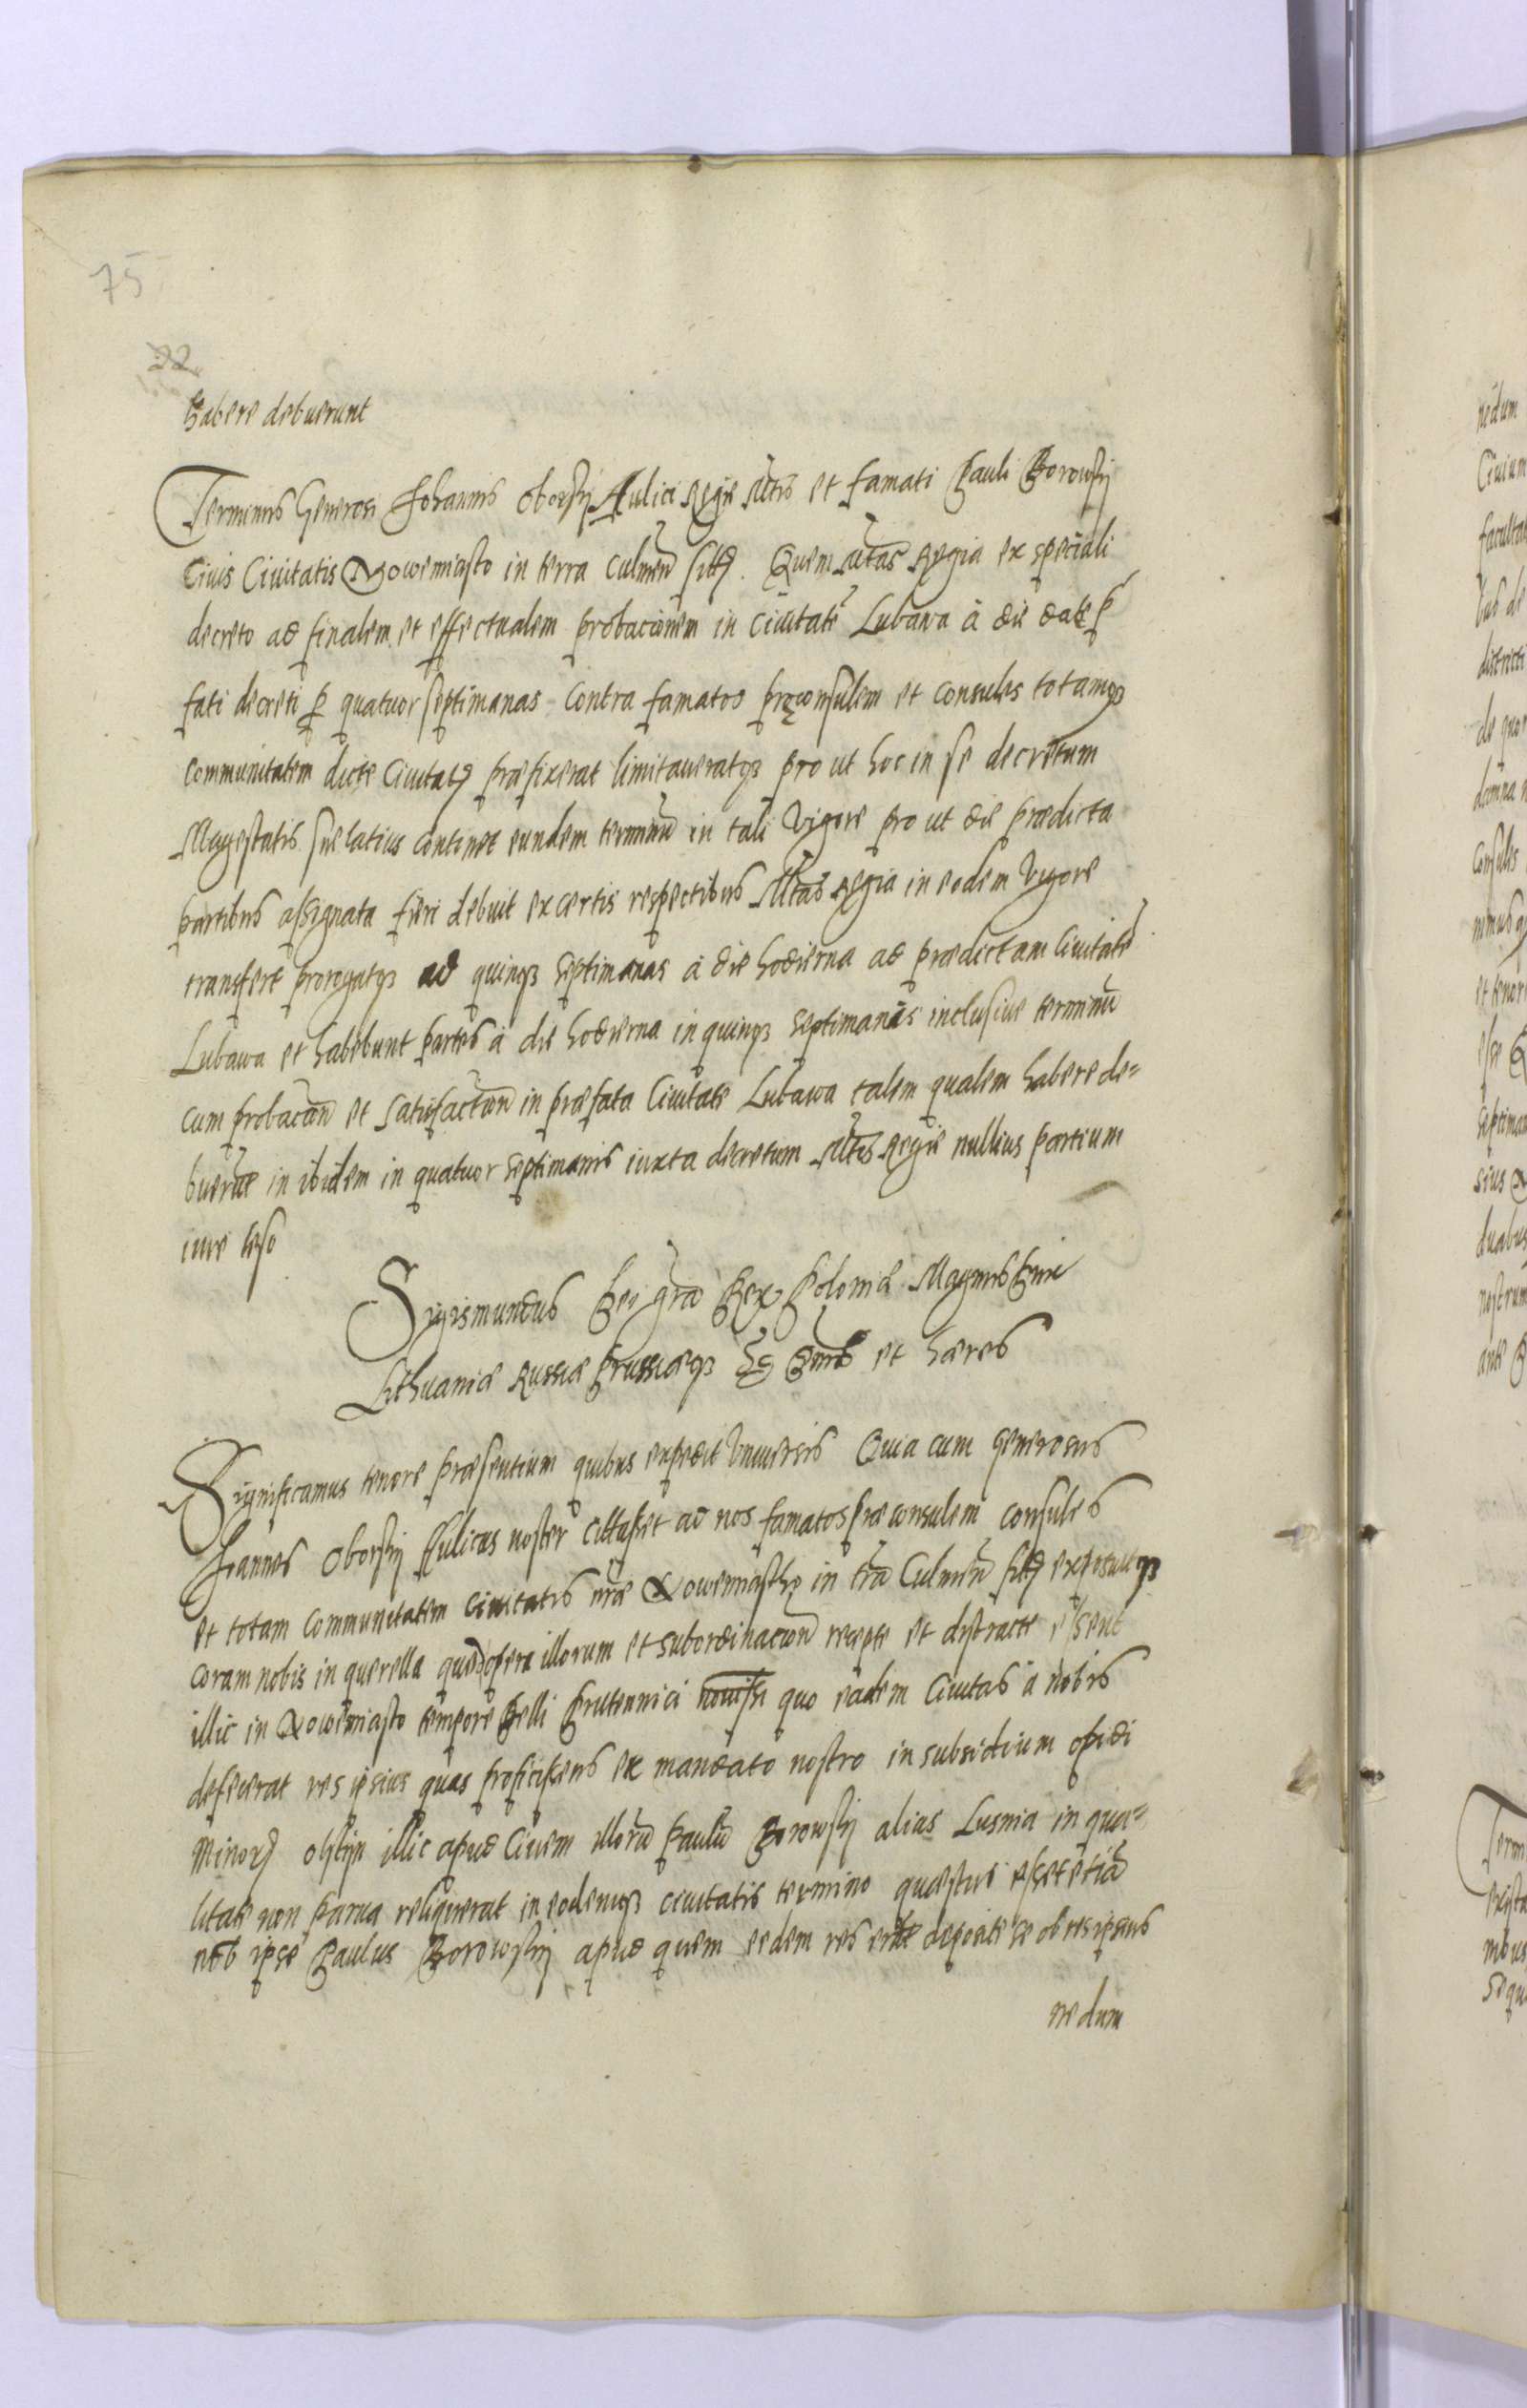 75
22
habere debuerunt
Terminus Generosi Johannis Oborsky Aulici Regie Mtis et famati Pauli Borowsky
Civis Civitatis Nowemiasto in terra Culmen̄ . Quem Mtas Regia ex speciali
decreto ad finalem et effectualem probacionem in Civitate Lubawa à die date p̄
fati decreti p quatuor septimanas contra famatos proconsulem et consules totamq3
communitatem dicte Civitatis præfixerat limitaueratq3 pro ut hoc in se decretum
Magestatis sue latius continet eundem terminū in tali vigore pro ut die prædicta
partibus assignata fieri debuit ex certis respectibus Mtas Regia in eodem vigore
transfert prorogatq3 ad quinq3 septimanas à die hodierna ad prædictam Civitatē
Lubawa et habebunt partes à die hodierna in quinq3 septimanis inclusiue terminū
cum probacion̄ et satisfaction̄ in præfata Civitate Lubawa talem qualem habere de=
buerūt in ibidem in quatuor septimanis iuxta decretum Mtis Regie nullius partium
iure leso
Sigismundus Dei gra Rex Poloniæ Magnus Dux
Lithuaniæ Russiæ Prussiæq3 Dn̄s et hæres
Significamus tenore præsentium quibus expedit Vniuersis Quia cum generosus
Joannes Oborsky Aulicus noster citasset ad nos famatos præconsulem consules
et totam communitatem Civitatis nr̄æ Nowemiastho in tr̄a Culmen̄ exposuitq3
coram nobis in querella quod opera illorum et subordinacion̄ recepte et distracte essent
illic in Nowemiasto tempore Belli Prutennici novissi quo eadem Civitas à nobis
defecerat res ipsius quas proficiscens ex mandato nostro in subsidium opidi
Minoris olstyn illic apud Civem illorū Paulū Borowsky alias Lusnia in qua=
litate non parua reliquerat in eodemq3 civitatis termino quæstus esset etiā
nob̄ ipse Paulus Borowsky apud quem eedem res erāt deposite se ob res ipsius
nedum